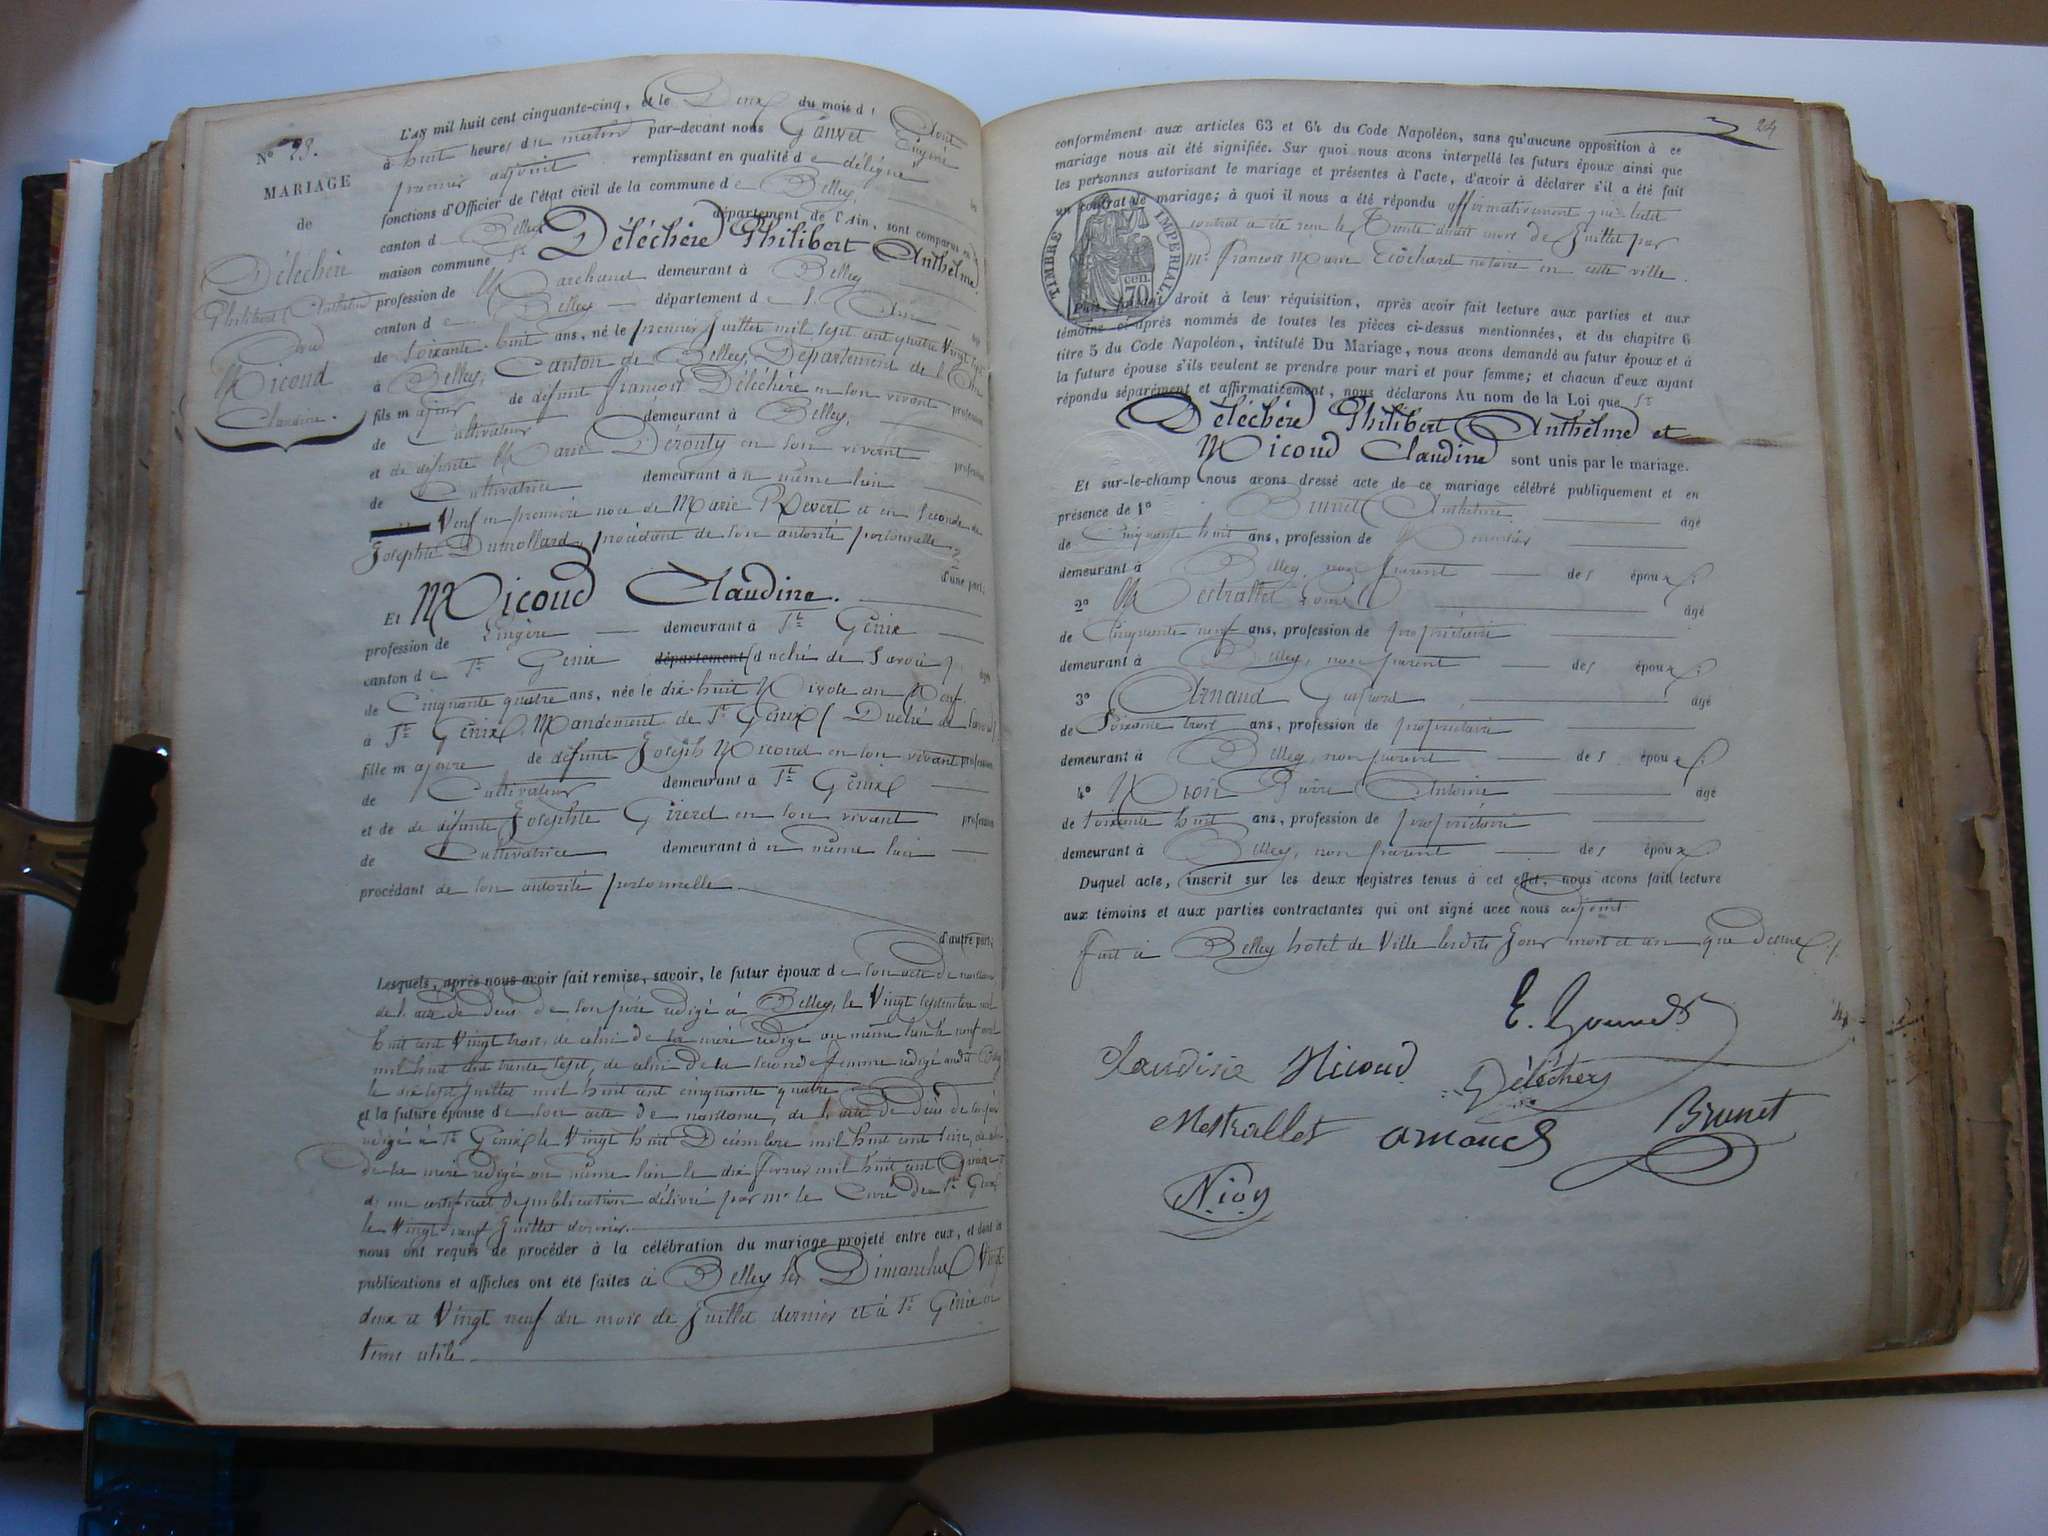 N° 23.
MARIAGE
de
Déléchère
Philibert Anthelme
et
Micoud
Claudine.
L'AN mil huit cent cinquante-cinq, et le Deux du mois d'Aout
à huit heures du matin par-devant nous Gauvet Eugène
premier adjoint remplissant en qualité de délégué les
fonctions d'Officier de l'état civil de la commune de Belley
canton de Belley département de l'Ain, sont comparus en la
maison commune Sr. Déléchère Philibert Anthelme
profession de Marchand demeurant à Belley
canton de Belley — département de l'Ain — âgé
de soixante-huit ans, né le premier Juillet mil sept cent quatre Vingt sept
à Belley, Canton de Belley, Département de l'Ain
fils majeur de défunt François Déléchère en son vivant profession
de Cultivateur demeurant à Belley,
et de défunte Marie Derouty en son vivant profession
de Cultivatrice demeurant à u même lieu
Veuf en première noce de Marie Revert et en seconde de
Josephte Dumollard, procédant de son autorité personnelle
d'une part;
Et Micoud Claudine.
profession de Lingère — demeurant à St. Genix
canton de St. Genix département (duché de Savoie) âgée
de Cinquante quatre ans, née le dix-huit Nivose an Neuf
à St. Genix, Mandement de St. Genix (Duché de Savoie)
fille majeure de défunt Joseph Micoud en son vivant profession
de Cultivateur demeurant à St. Genix
et de défunte Josephte Girerd en son vivant profession
de Cultivatrice demeurant à u même lieu
procédant de son autorité personnelle
d'autre part;
Lesquels, après nous avoir fait remise, savoir, le futur époux de son acte de naissance
de l'acte de décès de son père rédigé à Belley, le Vingt septembre mil
huit cent Vingt trois, de celui de sa mère rédigé au même lieu le neuf
mil huit cent trente sept, de celui de sa seconde femme rédigé audit Belley
le dix sept Juillet mil huit cent cinquante quatre
et la future épouse de son acte de naissance, de l'acte de décès de son père
rédigé à St. Genix le Vingt huit Décembre mil huit cent
de sa mère rédigé au même lieu le dix février mil huit cent
d'un certificat de publication délivré par mr. le Curé de St. Genix
le Vingt-neuf Juillet dernier.
nous ont requis de procéder à la célébration du mariage projeté entre eux, et dont les
publications et affiches ont été faites à Belley les Dimanches Vingt
deux et Vingt neuf du mois de Juillet dernier et à St. Genix en
tems utile
24
conformément aux articles 63 et 64 du Code Napoléon, sans qu'aucune opposition à ce
mariage nous ait été signifiée. Sur quoi nous avons interpellé les futurs époux ainsi que
les personnes autorisant le mariage et présentes à l'acte, d'avoir à déclarer s'il a été fait
un contrat de mariage; à quoi il nous a été répondu affirmativement que ledit
contrat a été reçu le Trente dudit mois de Juillet par
Me. François Marie Tiochard notaire en cette ville.
TIMBRE IMPERIAL
70 cen.
Puis, faisant droit à leur réquisition, après avoir fait lecture aux parties et aux
témoins ci-après nommés de toutes les pièces ci-dessus mentionnées, et du chapitre 6
titre 5 du Code Napoléon, intitulé Du Mariage, nous avons demandé au futur époux et à
la future épouse s'ils veulent se prendre pour mari et pour femme; et chacun d'eux ayant
répondu séparément et affirmativement, nous déclarons Au nom de la Loi que Sr.
Déléchère Philibert Anthelme et
Micoud Claudine sont unis par le mariage.
Et sur-le-champ nous avons dressé acte de ce mariage célébré publiquement et en
présence de 1° Brunet Anthelme âgé
de Cinquante huit ans, profession de
demeurant à Belley, non parent — des époux
2° Mestrallet Louis âgé
de Cinquante neuf ans, profession de propriétaire
demeurant à Belley, non parent — des époux
3° Arnaud Guiford âgé
de Soixante trois ans, profession de propriétaire
demeurant à Belley, non parent — des époux
4° Nion Pierre Antoine âgé
de soixante huit ans, profession de propriétaire
demeurant à Belley, non parent — des époux
Duquel acte, inscrit sur les deux registres tenus à cet effet, nous avons fait lecture
aux témoins et aux parties contractantes qui ont signé avec nous adjoint.
fait à Belley hotel de Ville lesdits Jour mois et an que dessus
E. Gauvet
Claudine Micoud Déléchère
Mestrallet arnaud Brunet
Nion